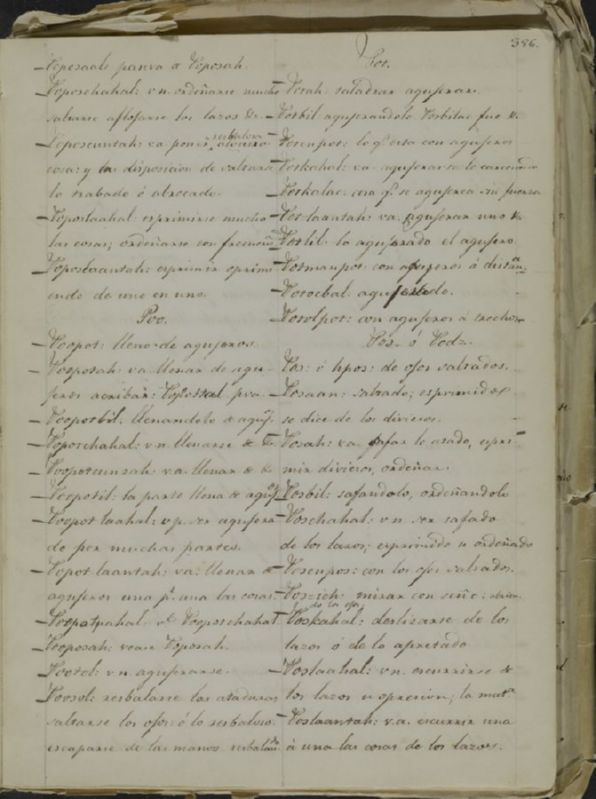 386.
Poposaal: panva de Poposah.
Poposchahal: v.n. ordeñarse mucho
salirse aflojarse los lazos &c.
Poposcuntah: va poner resbaloso
cosa: y la disposicion de salirse
lo trabado ó atrocado.
Poposlaahal: esprimirse mucho
las cosas; ordeñarse con frecuencia
Poposlaantah: esprimir oprimi
endo de uno en uno.
Poo.
Poopot: lleno de agujeros.
Pooposah: va llenar de agu-
jeros acribar: pva.
Poopotbil: llenandolo de aguj.
Popotchahal: v.n. llenarse de &c.
Poopotcunsah: v.a. llenar de &c
Poopotil: la parte llena de aguj.
Poopot laahal: v.p. ser agujera
do por muchas partes.
Popot laantah: va: llenar de
agujeros una pr. una las cosas.
Poopotpahal: vt Pooposchahal
Pooposah: vease Poposah.
Pootol: v.n. agujerarse.
Poosol: resbalarse las ataduras
salirse los ojos: ó lo resbaloso
escaparse de las manos resbalan
Pot.
Potah: taladrar agujerar.
Potbil agujerandolo Potbilac fue &c.
Potenpot: lo qe. esta con agujeros
Potkahal: va. agujerarse lo carcomido
Potkalac: cosa qe. se agujerea sin fuerza
Pot laantah: va. agujerar uno &c
Pothil: lo agujerado el agujero.
Potmanpot: con agujeros á distan.
Potocbal: agujerado.
Pototpot: con agujeros á trechos
Pos. ó Podz.
Pos: ó hpos: de ojos saltados.
Posaan: saltado; esprimidos
se dice de los diviesos.
Posah: va. safar lo atado, espri-
mir diviesos, ordeñar.
Posbil: safandolo, ordeñandolo
Poschahal: v.n. ser safado
de los lazos; esprimido u ordeñado
Posenpos: con los ojos saltados.
Posich: mirar con ceño:
de los ojos
Poskahal: deslizarse de los
lazos ó de lo apretado
Poslaahal: v.n. escurrirse de
los lazos u opresion; la mult.
Poslaantah: v.a. escurrir una
á una las cosas de los lazos.